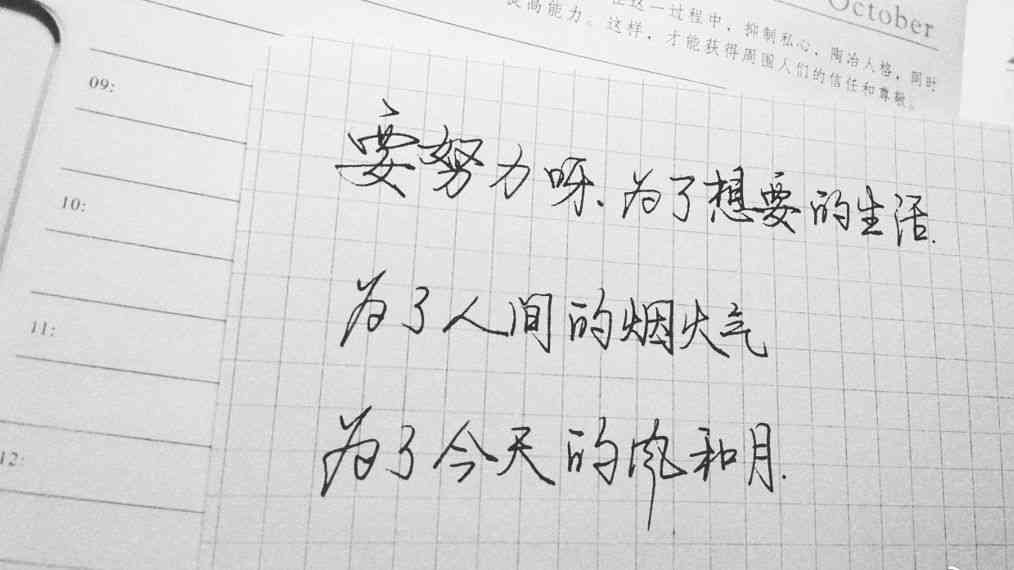 October
这一过程中，抑制私心，陶冶人格，同时
提高能力。这样，才能获得周围人们的信任和尊敬。
09:
10:
11:
12:
要努力呀、为了想要的生活.
为了人间的烟火气
为了今天的风和月.